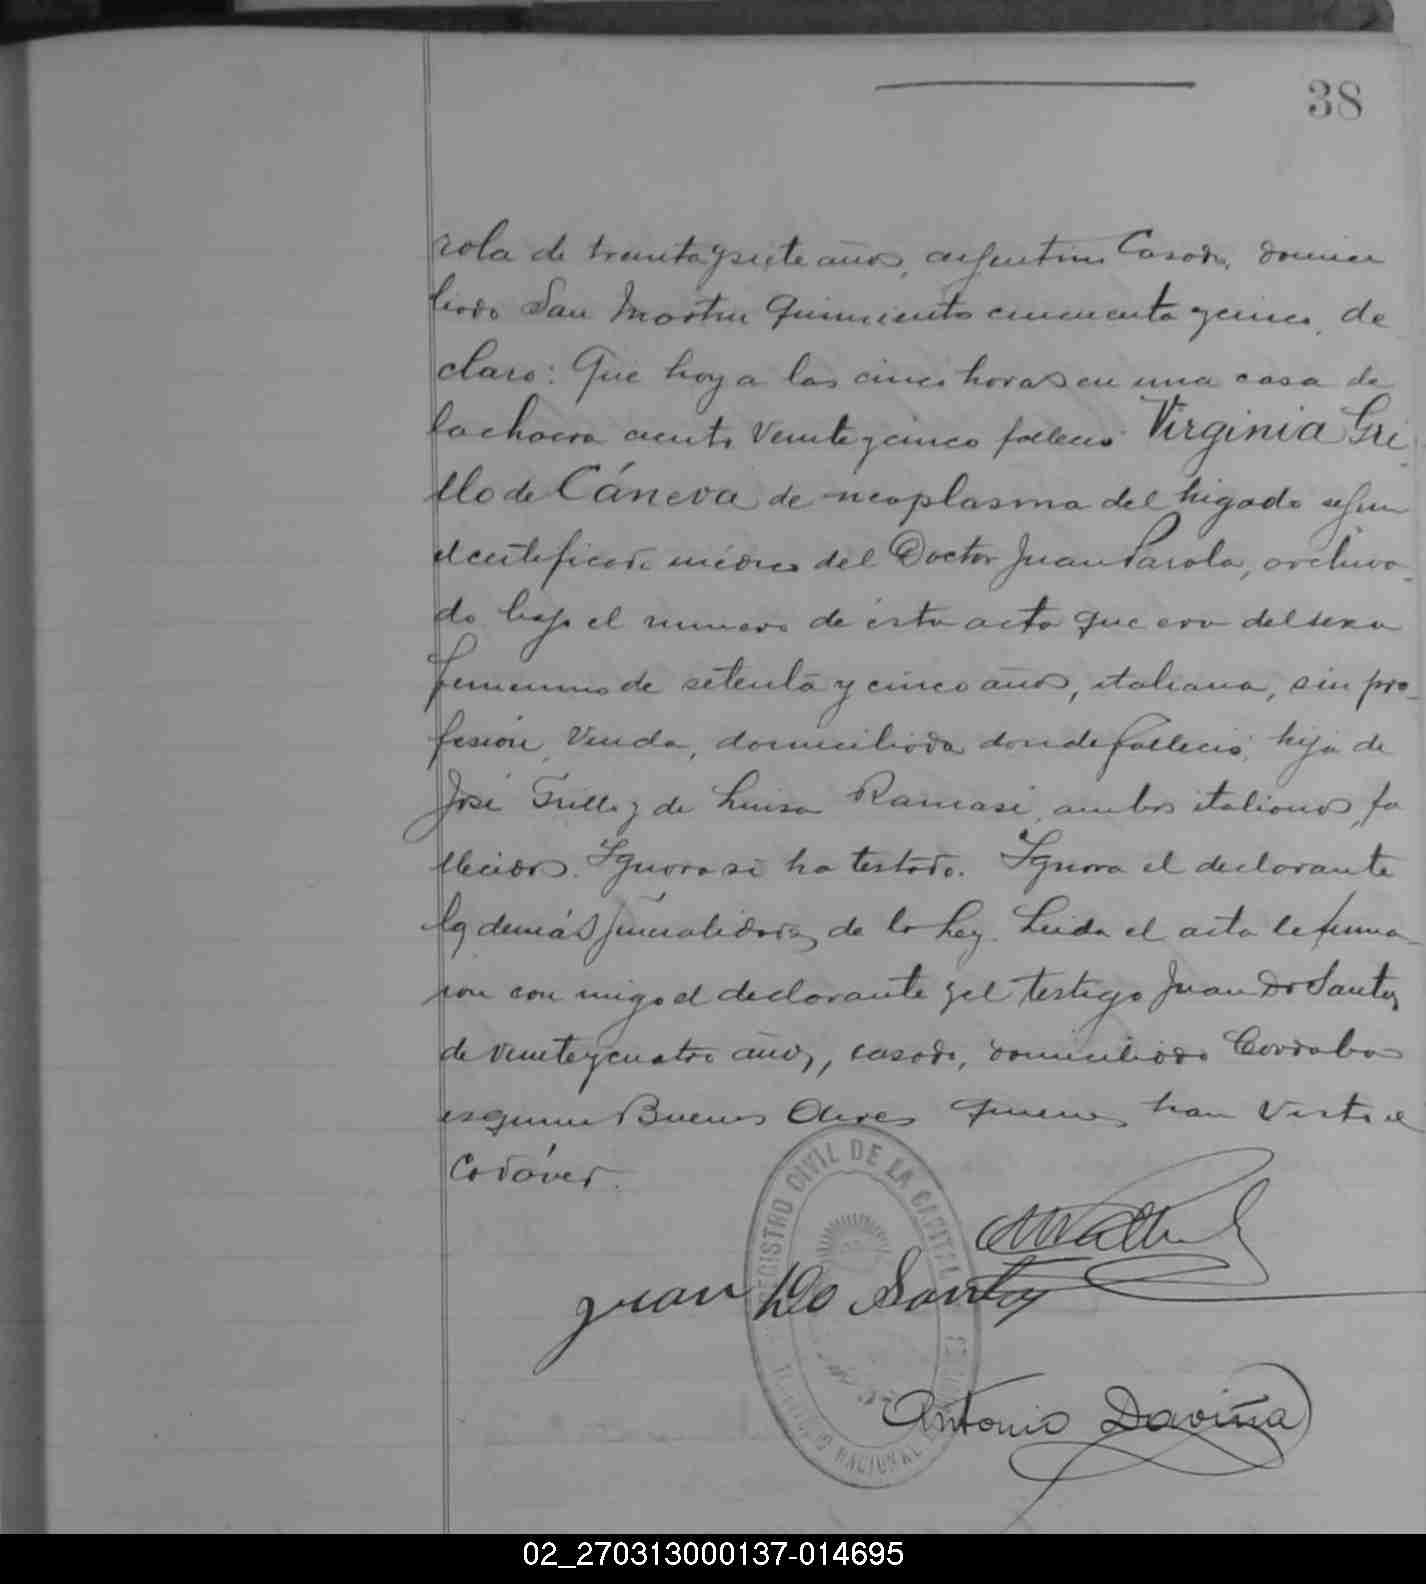 38
rola de treinta y siete años, argentino Casado, domici
liado San Martin quinientos cincuenta y cinco, de
claro: Que hoy a las cinco horas en una casa de
la chacra ciento veinte y cinco falleció Virginia Gri
llo de Cáneva de neoplasma del higado segun
el certificado médico del Doctor Juan Parola, archiva
do bajo el numero de esta acta que era del sexo
femenino de setenta y cinco años, italiana, sin pro
fesión, Viuda, domiciliada donde falleció, hija de
José Grillo y de Luisa Ramasi, ambos italianos, fa
llecidos. Ignora si ha testado. Ignora el declarante
las demás generalidades de la Ley. Leida el acta la firma
ron con migo el declarante y el testigo Juan Do Santos
de veinte y cuatro años, casado, domiciliado Cordoba
esquina Buenos Aires quienes han visto el
Cadáver.
REGISTRO CIVIL DE LA CAPITAL
Juan Do Santos
NACIONAL
Antonio Daviña
02_270313000137-014695